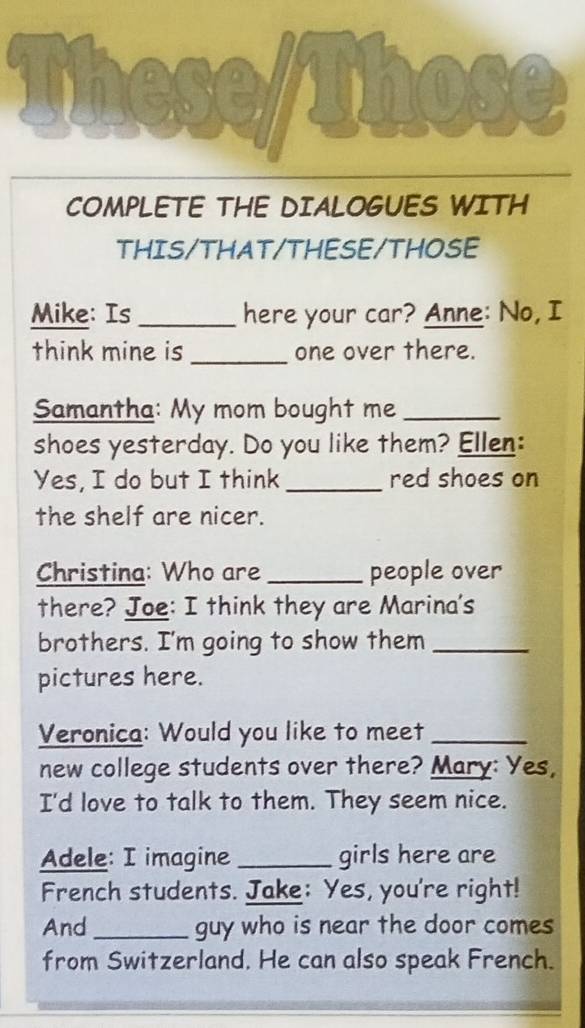 These/Those
COMPLETE THE DIALOGUES WITH
THIS/THAT/THESE/THOSE
Mike: Is _______ here your car? Anne: No, I
think mine is _______ one over there.
Samantha: My mom bought me _______
shoes yesterday. Do you like them? Ellen:
Yes, I do but I think _______ red shoes on
the shelf are nicer.
Christina: Who are _______ people over
there? Joe: I think they are Marina's
brothers. I'm going to show them _______
pictures here.
Veronica: Would you like to meet _______
new college students over there? Mary: Yes,
I'd love to talk to them. They seem nice.
Adele: I imagine _______ girls here are
French students. Jake: Yes, you're right!
And _______ guy who is near the door comes
from Switzerland. He can also speak French.